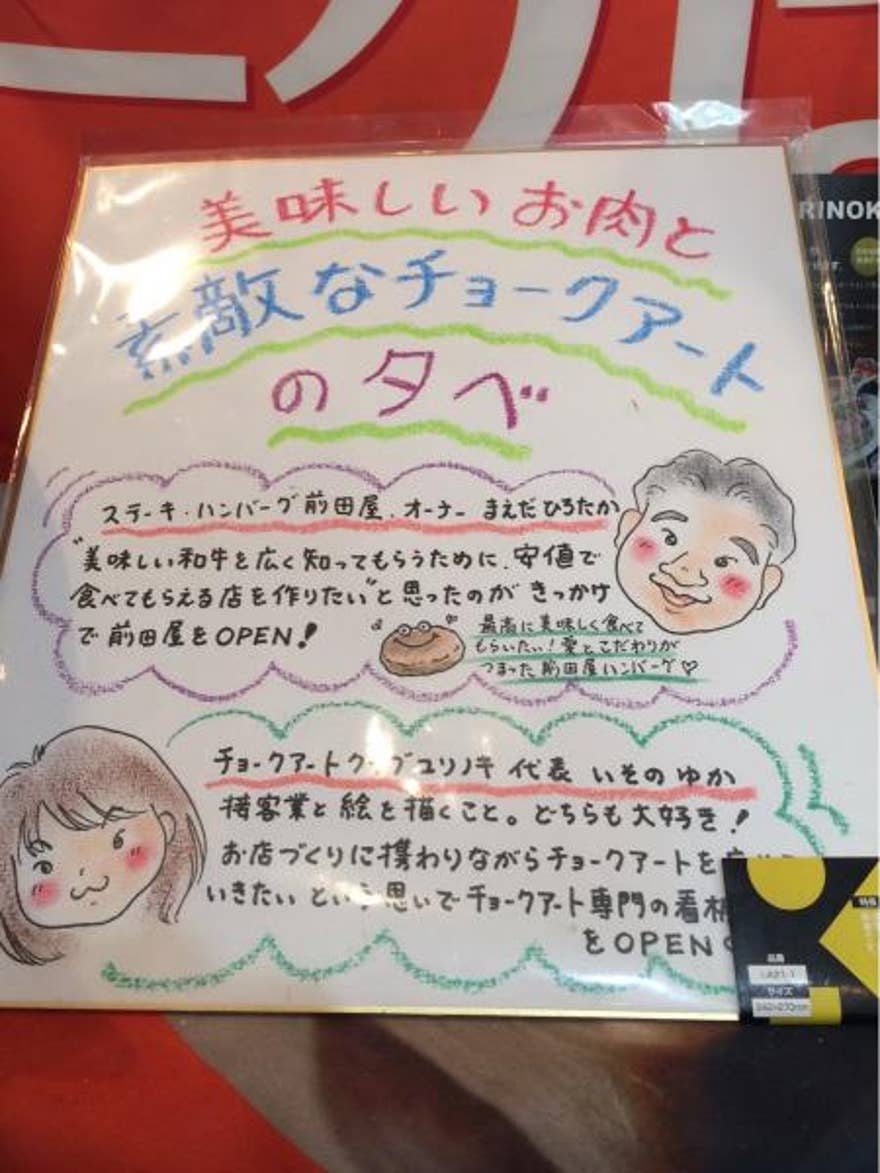 RINOK
美味しいお肉と
素敵なチョークアート
の夕べ
ステーキ・ハンバーグ前田屋.オーナー まえだひろたか
"美味しい和牛を広く知ってもらうために、安値で
食べてもらえる店を作りたい"と思ったのが きっかけ
で前田屋をOPEN!
最高に美味しく食べて
もらいたい!愛とこだわりが
つまった前田屋ハンバーグ♡
チョークアートクラブユリノキ 代表 いその ゆか
接客業と絵を描くこと。どちらも大好き!
お店づくりに携わりながらチョークアートを
いきたい という思いでチョークアート専門の看板
をOPEN
品番
LA21-1
サイズ
242×270mm